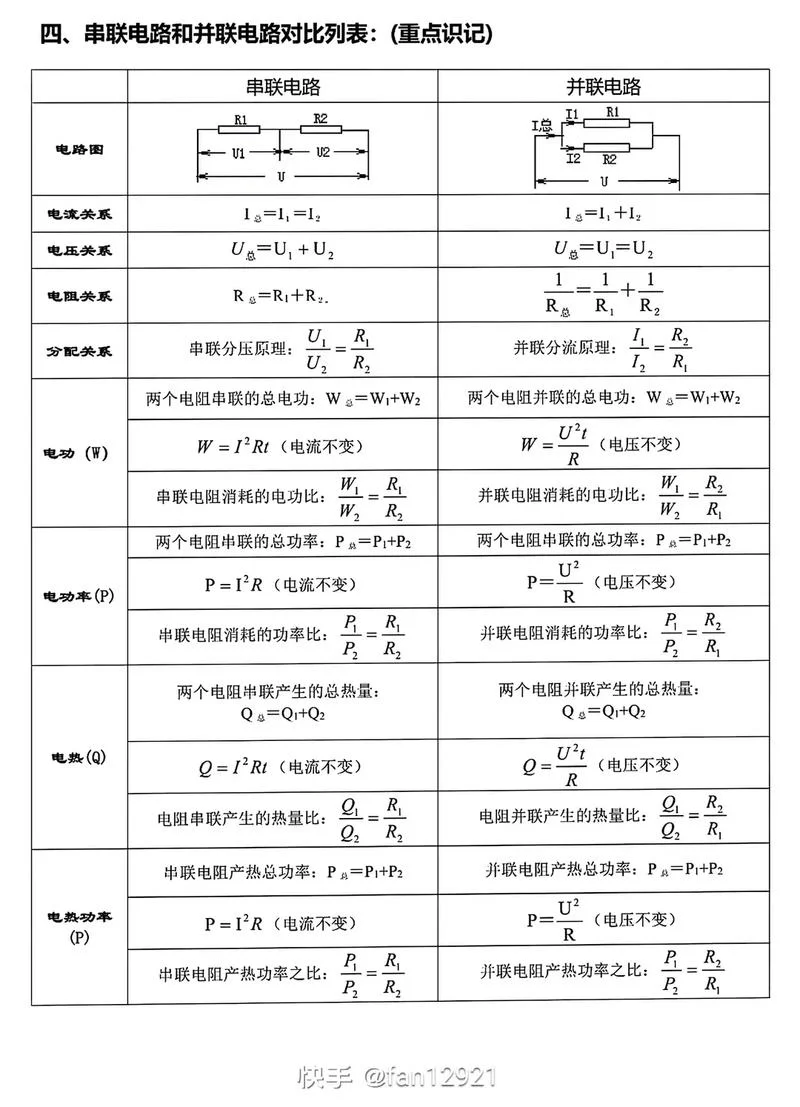 四、串联电路和并联电路对比列表：(重点识记)
串联电路 并联电路
电路图
R1 R2
U1 U2
U
I总 I1 R1
I2 R2
U
电流关系 I总=I₁=I₂ I总=I₁+I₂
电压关系 U总=U₁+U₂ U总=U₁=U₂
电阻关系 R总=R₁+R₂. 1/R总=1/R₁+1/R₂
分配关系 串联分压原理：U₁/U₂=R₁/R₂ 并联分流原理：I₁/I₂=R₂/R₁
电功 (W)
两个电阻串联的总电功：W总=W₁+W₂ 两个电阻并联的总电功：W总=W₁+W₂
W=I²Rt（电流不变） W=U²t/R（电压不变）
串联电阻消耗的电功比：W₁/W₂=R₁/R₂ 并联电阻消耗的电功比：W₁/W₂=R₂/R₁
电功率(P)
两个电阻串联的总功率：P总=P₁+P₂ 两个电阻串联的总功率：P总=P₁+P₂
P=I²R（电流不变） P=U²/R（电压不变）
串联电阻消耗的功率比：P₁/P₂=R₁/R₂ 并联电阻消耗的功率比：P₁/P₂=R₂/R₁
电热(Q)
两个电阻串联产生的总热量： 两个电阻并联产生的总热量：
Q总=Q₁+Q₂ Q总=Q₁+Q₂
Q=I²Rt（电流不变） Q=U²t/R（电压不变）
电阻串联产生的热量比：Q₁/Q₂=R₁/R₂ 电阻并联产生的热量比：Q₁/Q₂=R₂/R₁
电热功率
(P)
串联电阻产热总功率：P总=P₁+P₂ 并联电阻产热总功率：P总=P₁+P₂
P=I²R（电流不变） P=U²/R（电压不变）
串联电阻产热功率之比：P₁/P₂=R₁/R₂ 并联电阻产热功率之比：P₁/P₂=R₂/R₁
快手 @fan12921